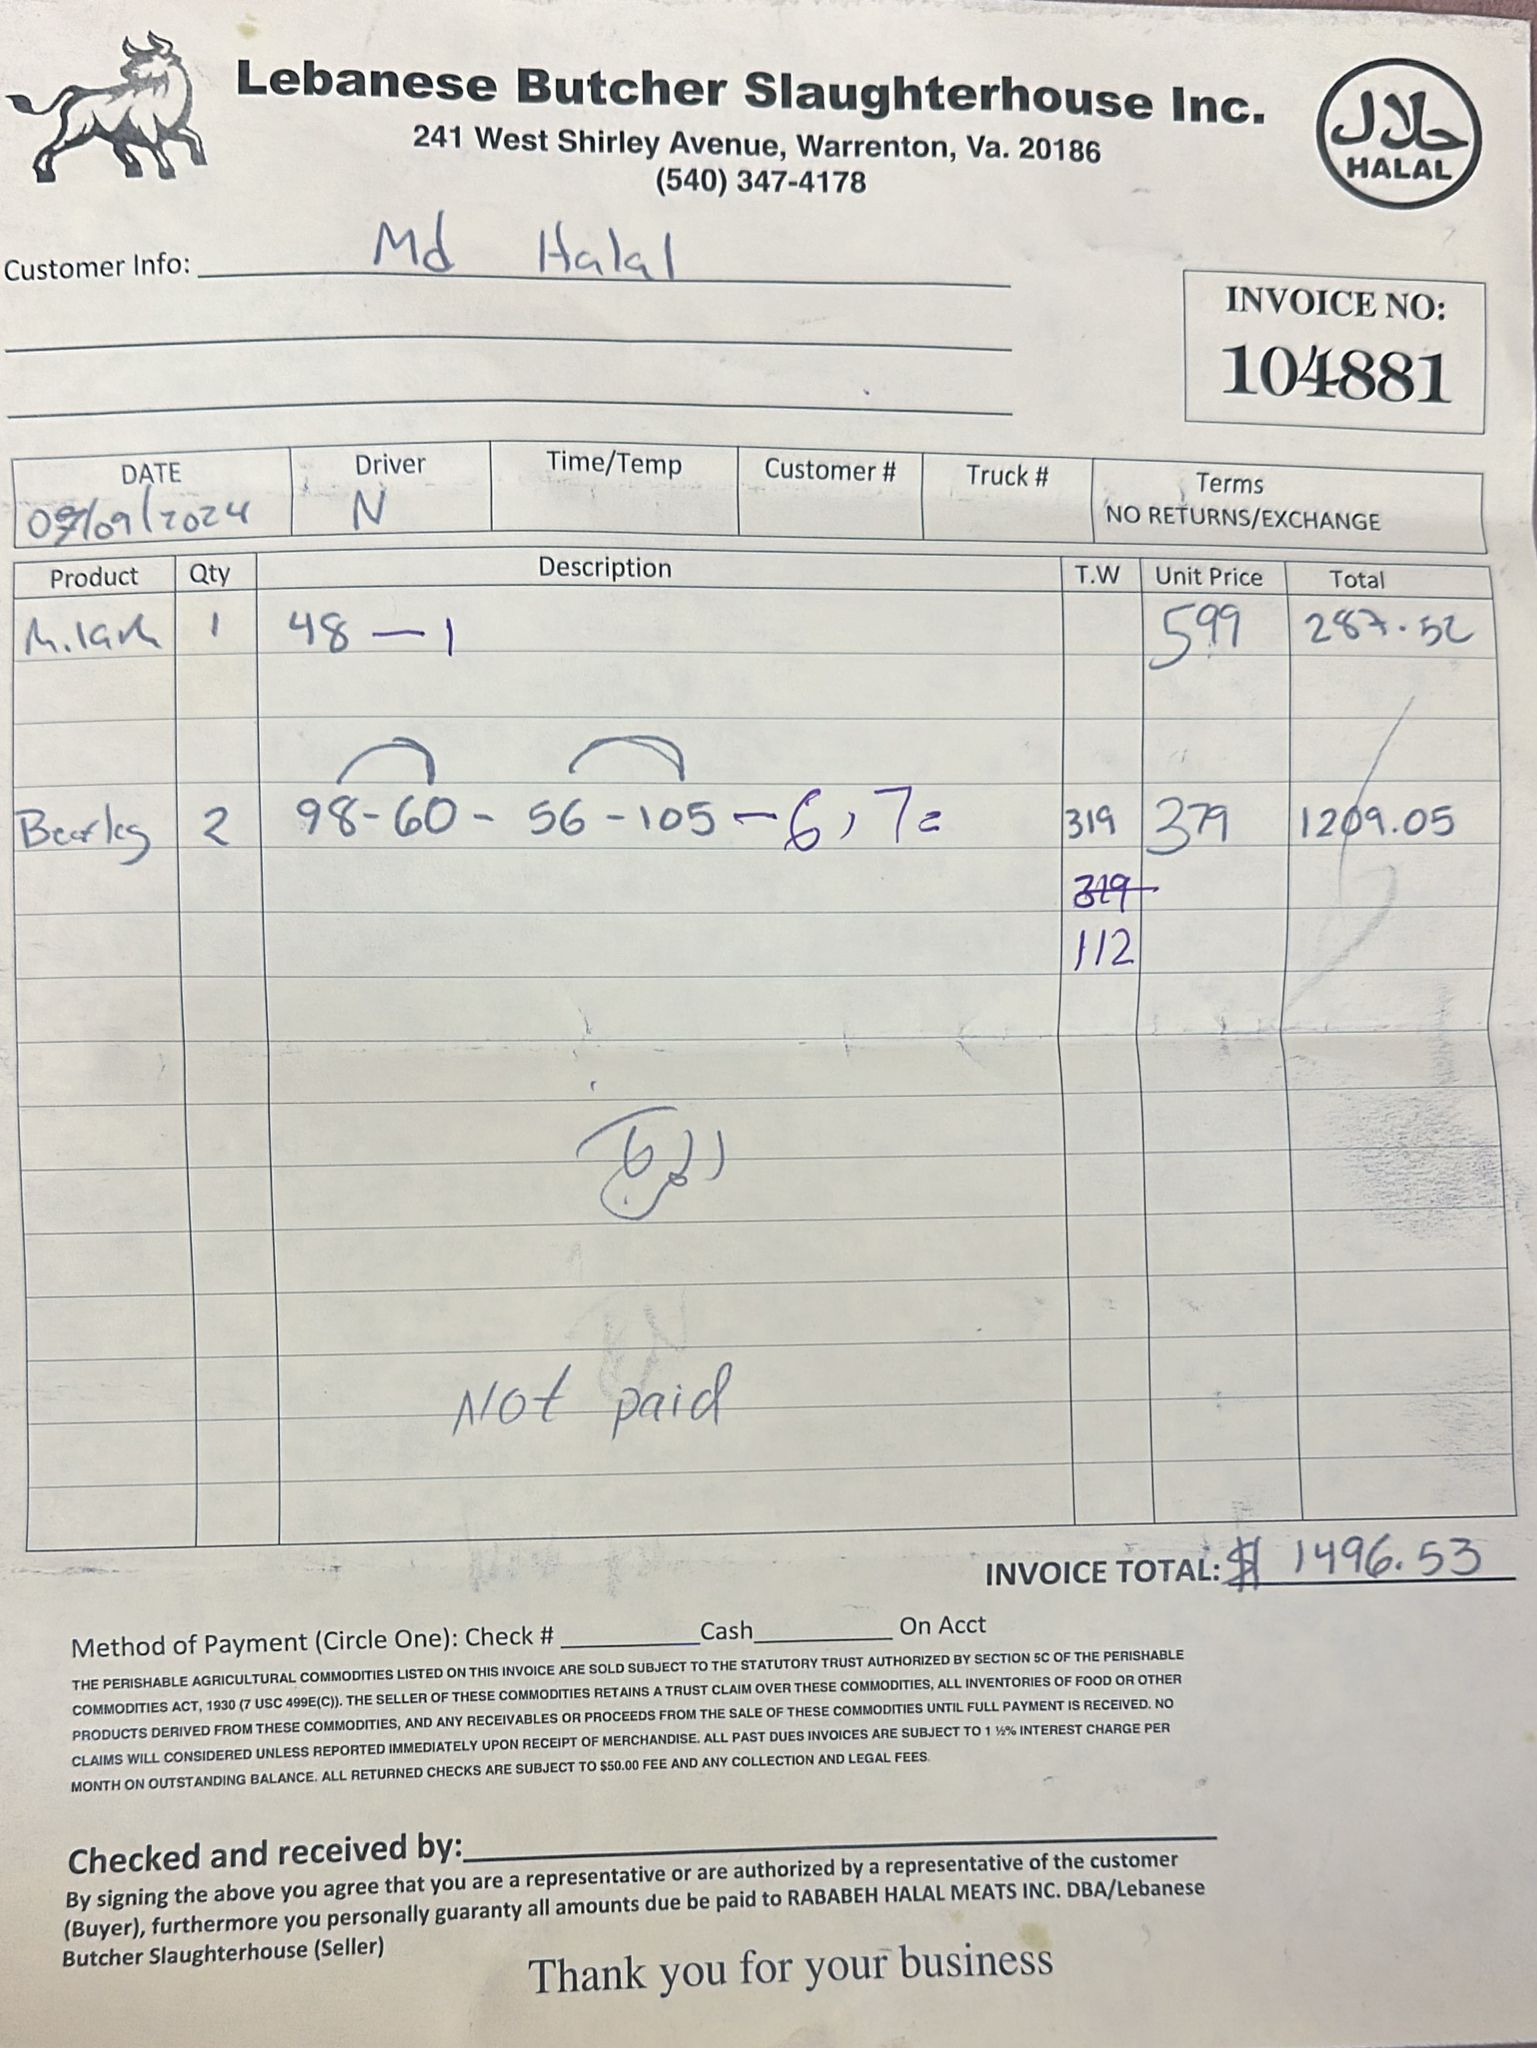 Lebanese Butcher Slaughterhouse Inc.
241 West Shirley Avenue, Warrenton, Va. 20186
(540) 347-4178
حلال
HALAL
Customer Info: Md Halal
INVOICE NO:
104881
DATE Driver Time/Temp Customer # Truck # Terms
09/09/2024 N NO RETURNS/EXCHANGE
Product Qty Description T.W Unit Price Total
1 48 - 1 599 287.52
2 98-60 - 56-105 - 6, 7= 319 379 1209.05
319
112
Not paid
INVOICE TOTAL: $ 1496.53
Method of Payment (Circle One): Check # Cash On Acct
THE PERISHABLE AGRICULTURAL COMMODITIES LISTED ON THIS INVOICE ARE SOLD SUBJECT TO THE STATUTORY TRUST AUTHORIZED BY SECTION 5C OF THE PERISHABLE
COMMODITIES ACT, 1930 (7 USC 499E(C)). THE SELLER OF THESE COMMODITIES RETAINS A TRUST CLAIM OVER THESE COMMODITIES, ALL INVENTORIES OF FOOD OR OTHER
PRODUCTS DERIVED FROM THESE COMMODITIES, AND ANY RECEIVABLES OR PROCEEDS FROM THE SALE OF THESE COMMODITIES UNTIL FULL PAYMENT IS RECEIVED. NO
CLAIMS WILL CONSIDERED UNLESS REPORTED IMMEDIATELY UPON RECEIPT OF MERCHANDISE. ALL PAST DUES INVOICES ARE SUBJECT TO 1 ½% INTEREST CHARGE PER
MONTH ON OUTSTANDING BALANCE. ALL RETURNED CHECKS ARE SUBJECT TO $50.00 FEE AND ANY COLLECTION AND LEGAL FEES.
Checked and received by:
By signing the above you agree that you are a representative or are authorized by a representative of the customer
(Buyer), furthermore you personally guaranty all amounts due be paid to RABABEH HALAL MEATS INC. DBA/Lebanese
Butcher Slaughterhouse (Seller)
Thank you for your business